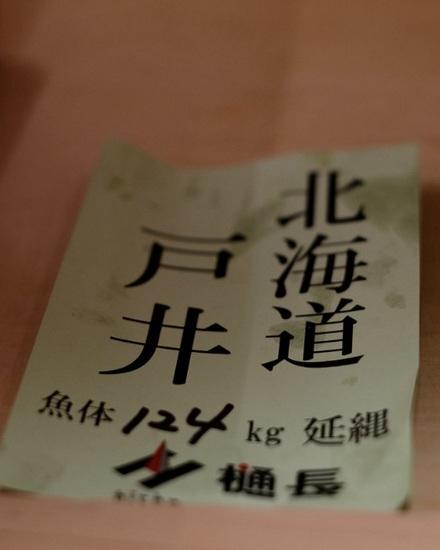 北海道
戸井
魚体 124 kg 延縄
樋長